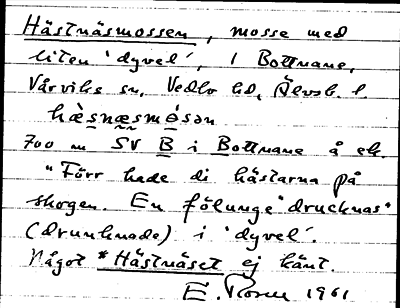 Hästnäsmossen, mosse med
liten 'dyvel', i Bottnane,
Vårviks sn, Vedbo hd, Älvsb. l.
hæ̀snæsmósən
700 m SV B i Bottnane å ek.
"Förr hade di hästarna på
skogen. En fölunge "drucknas"
(drunknade) i 'dyvel'.
Något *Hästnäset ej känt.
E. Rosén 1961